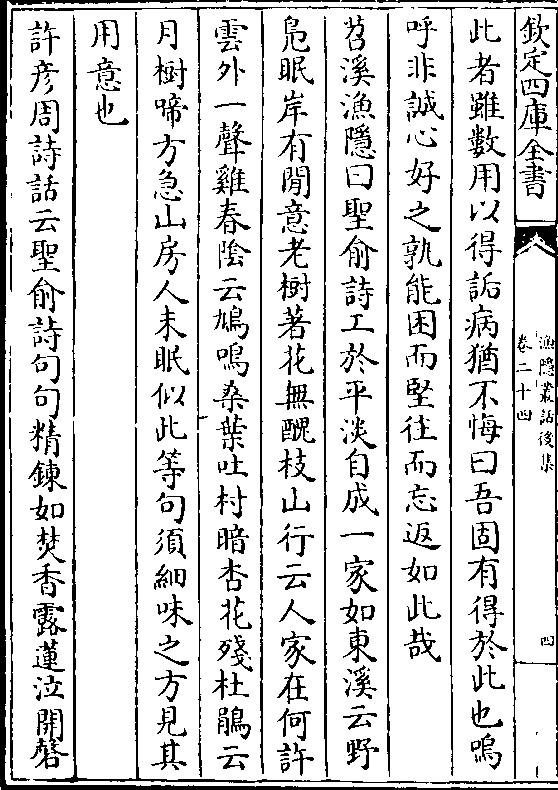 欽定四庫全書
漁隱叢話後集
卷二十四
四
此者雖數用以得詬病猶不悔曰吾固有得於此也嗚
呼非誠心好之孰能困而堅往而忘返如此哉
苕溪漁隱曰聖俞詩工於平淡自成一家如東溪云野
鳬眠岸有閒意老樹著花無醜枝山行云人家在何許
雲外一聲雞春陰云鳩鳴桑葉吐村暗杏花殘杜鵑云
月樹啼方急山房人未眠似此等句須細味之方見其
用意也
許彦周詩話云聖俞詩句句精鍊如焚香露蓮泣開磬